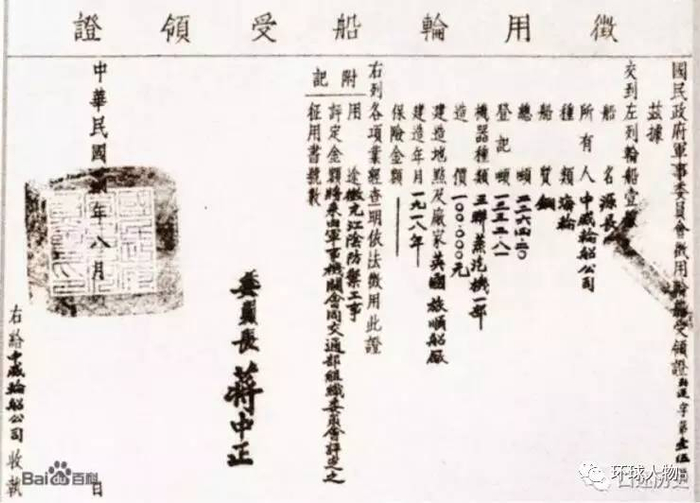 徵用輪船受領證
國民政府軍事委員會徵用輪船受領證
茲據
交到左列輪船壹
船名 源長
所有人 中威輪船公司
種類 海輪
船質 鋼
總噸 二二六四·二〇
登記噸 一三三二·八一
機器種類 三聯蒸汽機一部
造價 一〇〇·〇〇〇元
建造地點及廠家 英國旅順船廠
建造年月 一九一八年
保險金額
右列各項業經查明依法徵用此證
附記
用途 徵充江陰防禦工事
評定金額 將來由軍事機關會同交通部組織委員會評定之
征用書號數
委員長 蔣中正
中華民國 年八月 日
右給中威輪船公司收執
Bai 百科
环球人物